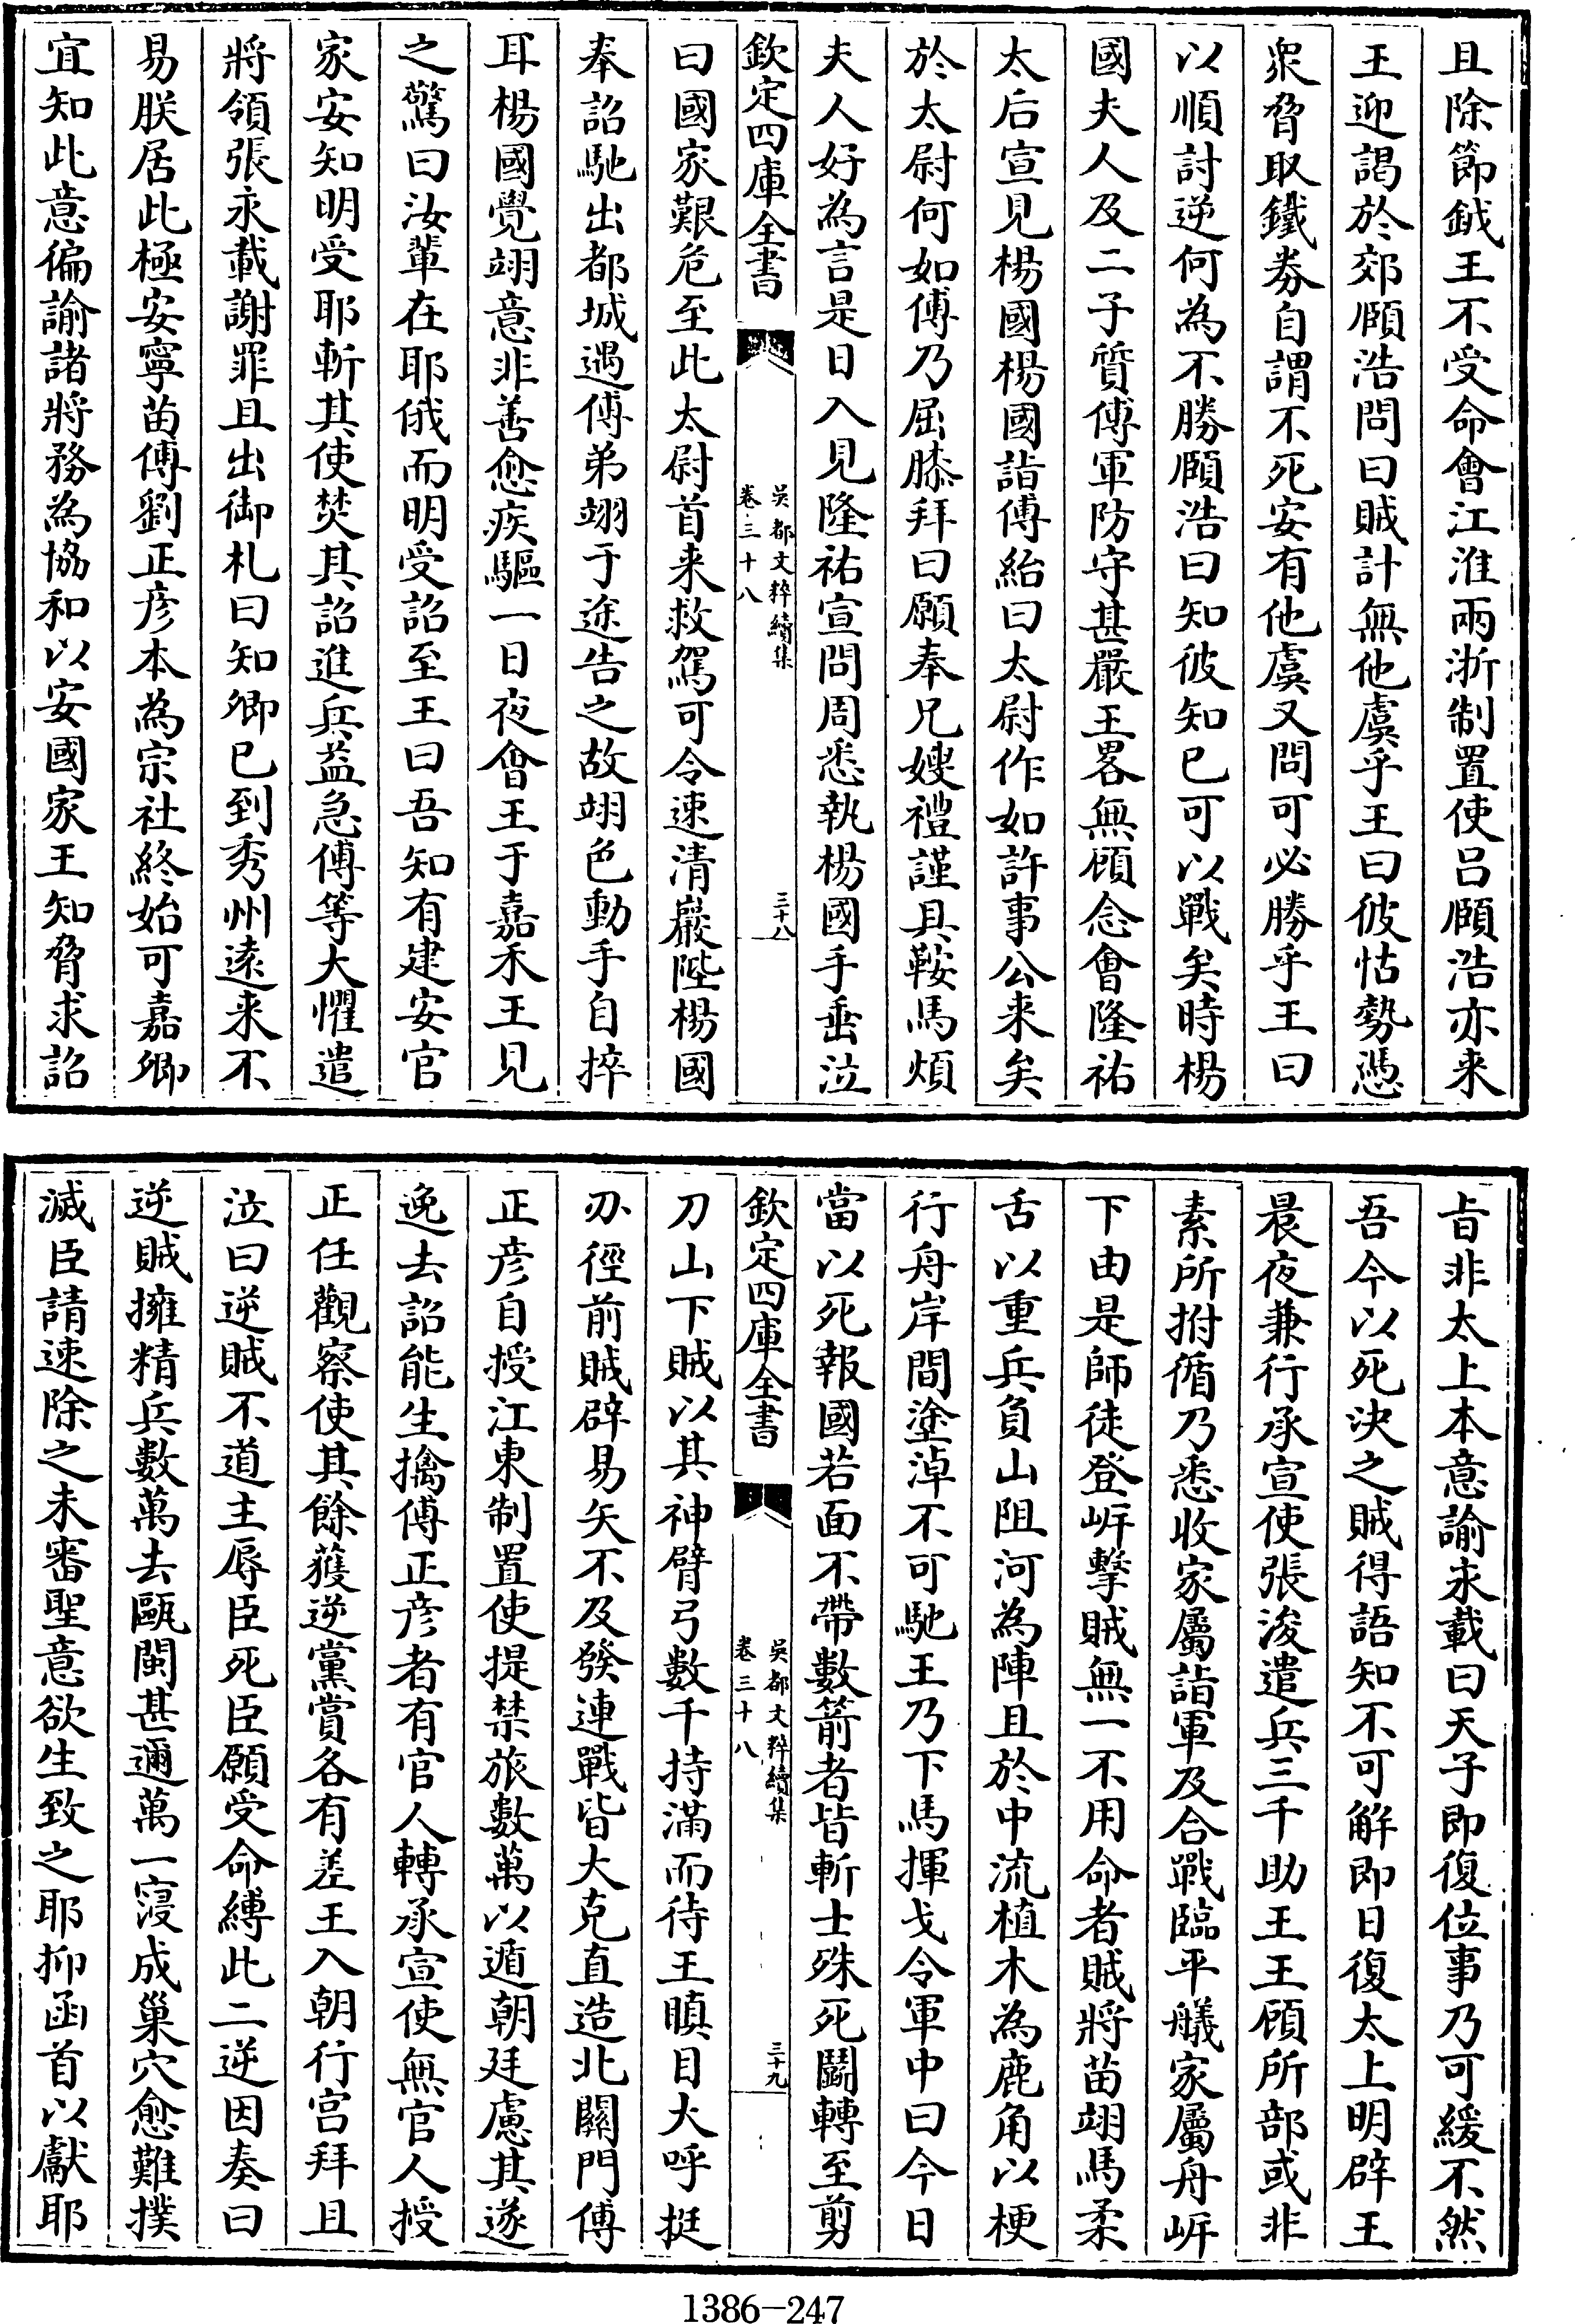 且除節鉞王不受命會江淮兩浙制置使呂頤浩亦来
王迎謁於郊頤浩問曰賊計無他虞乎王曰彼怙勢憑
衆脅取鐵券自謂不死安有他虞又問可必勝乎王曰
以順討逆何為不勝頤浩曰知彼知已可以戰矣時楊
國夫人及二子質傅軍防守甚嚴王畧無顧念會隆祐
太后宣見楊國楊國詣傅紿曰太尉作如許事公来矣
於太尉何如傅乃屈膝拜曰願奉兄嫂禮謹具鞍馬煩
夫人好為言是日入見隆祐宣問周悉執楊國手垂泣
欽定四庫全書
吳都文粹續集
卷三十八
三十八
曰國家艱危至此太尉首来救駕可令速清巖陛楊國
奉詔馳出都城遇傅弟翊于途告之故翊色動手自捽
耳楊國覺翊意非善愈疾驅一日夜會王于嘉禾王見
之驚曰汝輩在耶俄而明受詔至王曰吾知有建安官
家安知明受耶斬其使焚其詔進兵益急傅等大懼遣
將領張永載謝罪且出御札曰知卿已到秀州遠来不
易朕居此極安寧苗傅劉正彦本為宗社終始可嘉卿
宜知此意徧諭諸將務為協和以安國家王知脅求詔
㫖非太上本意諭永載曰天子即復位事乃可緩不然
吾今以死決之賊得語知不可解即日復太上明辟王
晨夜兼行承宣使張浚遣兵三千助王王顧所部或非
素所拊循乃悉收家屬詣軍及合戰臨平艤家屬舟岍
下由是師徒登岍擊賊無一不用命者賊將苗翊馬柔
舌以重兵負山阻河為陣且於中流植木為鹿角以梗
行舟岸間塗淖不可馳王乃下馬揮戈令軍中曰今日
當以死報國若面不帶數箭者皆斬士殊死鬬轉至剪
欽定四庫全書
吳都文粹續集
卷三十八
三十九
刀山下賊以其神臂弓數千持滿而待王瞋目大呼挺
刅徑前賊辟易矢不及發連戰皆大克直造北闗門傅
正彦自授江東制置使提禁旅數萬以遁朝廷慮其遂
逸去詔能生擒傅正彦者有官人轉承宣使無官人授
正任觀察使其餘獲逆黨賞各有差王入朝行宫拜且
泣曰逆賊不道主辱臣死臣願受命縛此二逆因奏曰
逆賊擁精兵數萬去甌閩甚邇萬一寖成巢穴愈難撲
滅臣請速除之未審聖意欲生致之耶抑函首以獻耶
1386-247